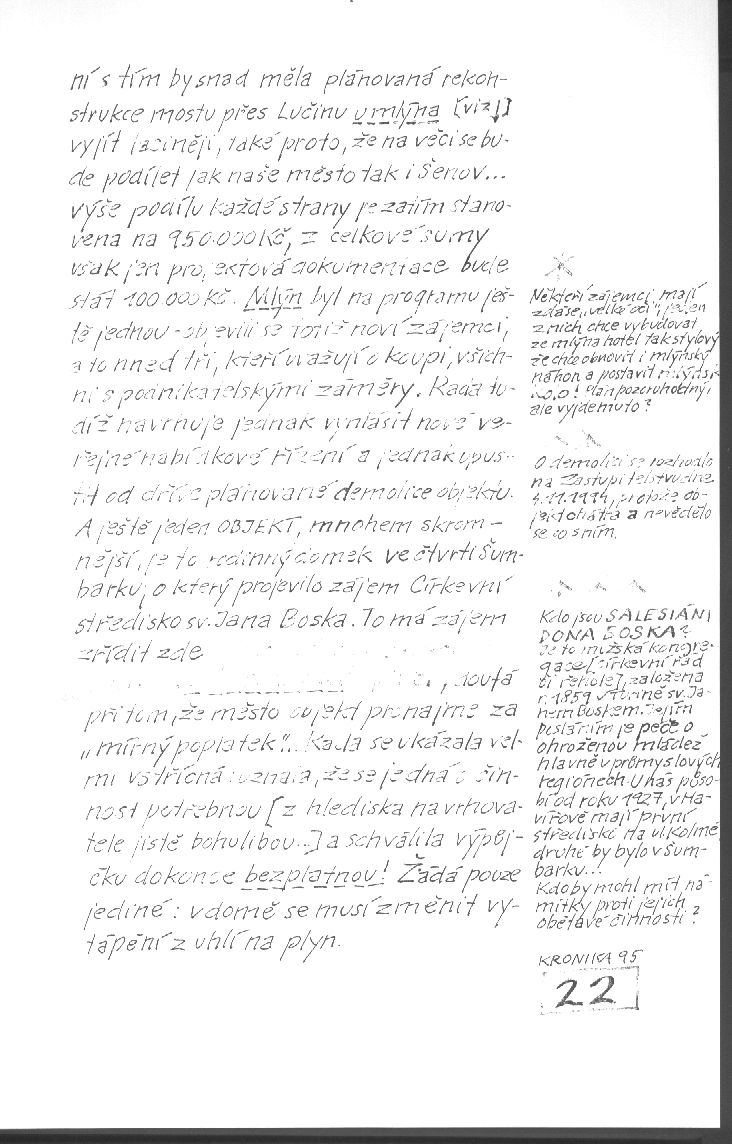 ní s tím by snad měla plánovaná rekon-
strukce mostu přes Lučinu u mlýna [viz↓]
vyjít laciněji, také proto, že na věci se bu-
de podílet jak naše město tak i Šenov...
výše podílu každé strany je zatím stano-
vena na 950.000 Kč, z celkové sumy
však jen projektová dokumentace bude
stát 100.000 Kč. Mlýn byl na programu ješ-
tě jednou - objevili se totiž noví zájemci,
a to hned tři, kteří uvažují o koupi, všich-
ni s podnikatelskými záměry. Rada tu-
díž navrhuje jednak vyhlásit nové ve-
řejné nabídkové řízení a jednak upus-
tit od dříve plánované demolice objektu.
A ještě jeden OBJEKT, mnohem skrom-
nější, je to rodinný domek ve čtvrti Šum-
barku, o který projevilo zájem Církevní
středisko sv. Jana Boska. To má zájem
zřídit zde
, doufá
přitom, že město objekt pronajme za
„mírný poplatek"... Rada se ukázala vel-
mi vstřícná: uznala, že se jedná o čin-
nost potřebnou [z hlediska navrhova-
tele jistě bohulibou...] a schválila výpůj-
čku dokonce bezplatnou! Žádá pouze
jediné: v domě se musí změnit vy-
tápění z uhlí na plyn.
Někteří zájemci mají
zdá se „velké oči", jeden
z nich chce vybudovat
ze mlýna hotel tak stylový
že chce obnovit i mlýnský
náhon a postavit mlýnské
kolo! Plán pozoruhodný,
ale vyjde mu to?
O demolici se rozhodlo
na Zastupitelstvu dne
4.11.1994, protože ob-
jekt chátrá a nevědělo
se co s ním.
Kdo jsou SALESIÁNI
DONA BOSKA?
Je to mužská kongre-
gace [církevní řád
či řehole], založená
r. 1859 v Turíně sv. Ja-
nem Boskem. Jejím
posláním je péče o
ohroženou mládež
hlavně v průmyslových
regionech. U nás půso-
bí od roku 1927, v Ha-
vířově mají první
středisko na ul. Kolmé,
druhé by bylo v Šum-
barku...
Kdo by mohl mít ná-
mitky proti jejich
obětavé činnosti?
KRONIKA 95
22